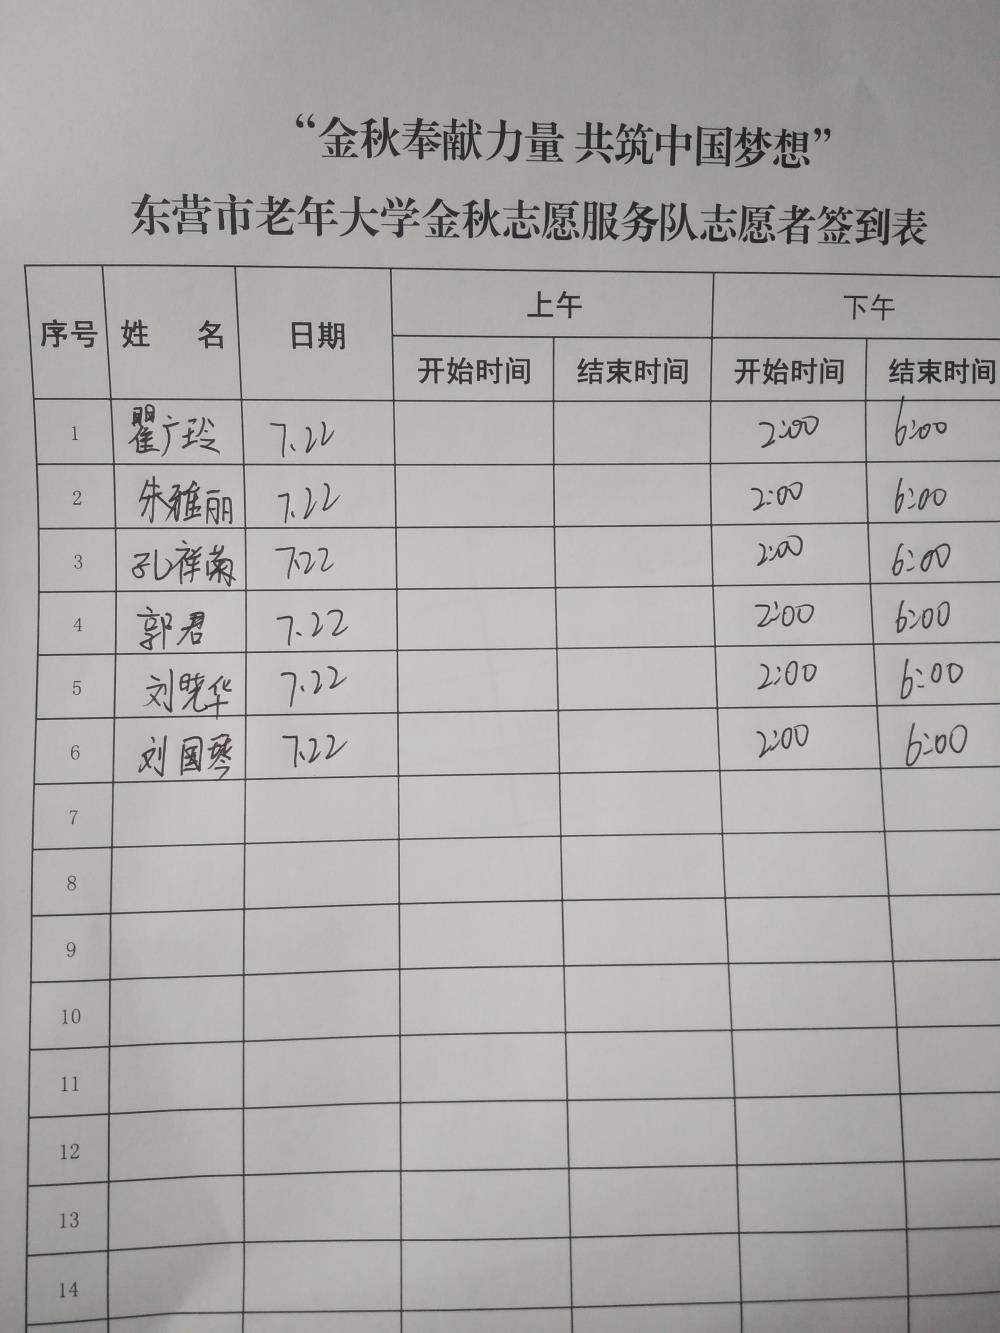 “金秋奉献力量 共筑中国梦想”
东营市老年大学金秋志愿服务队志愿者签到表
序号 姓 名 日期 上午 下午
开始时间 结束时间 开始时间 结束时间
1 瞿广玲 7.22 2:00 6:00
2 朱雅丽 7.22 2:00 6:00
3 孔祥菊 7.22 2:00 6:00
4 郭君 7.22 2:00 6:00
5 刘晓华 7.22 2:00 6:00
6 刘国琴 7.22 2:00 6:00
7
8
9
10
11
12
13
14